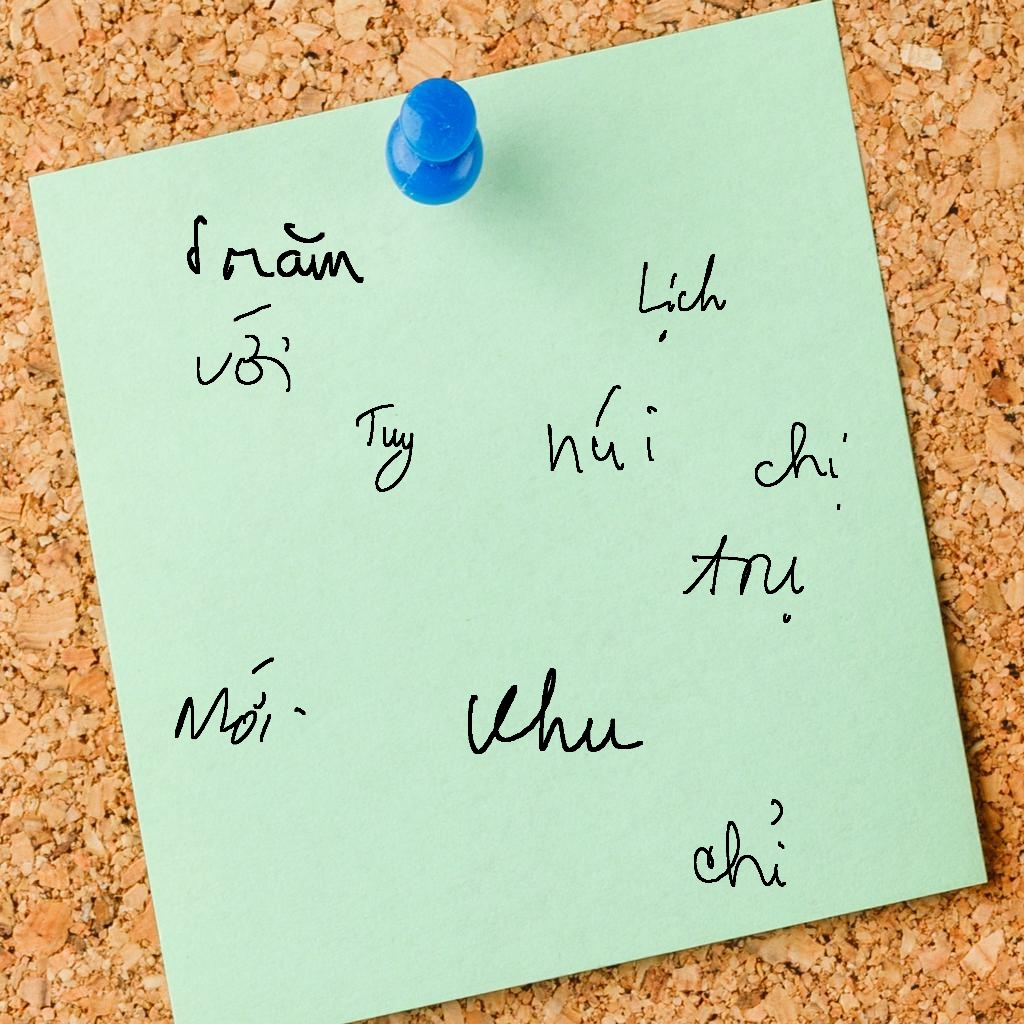 trăm
Lịch
với
Tuy
núi
chị
trụ
Mới
khu
chỉ